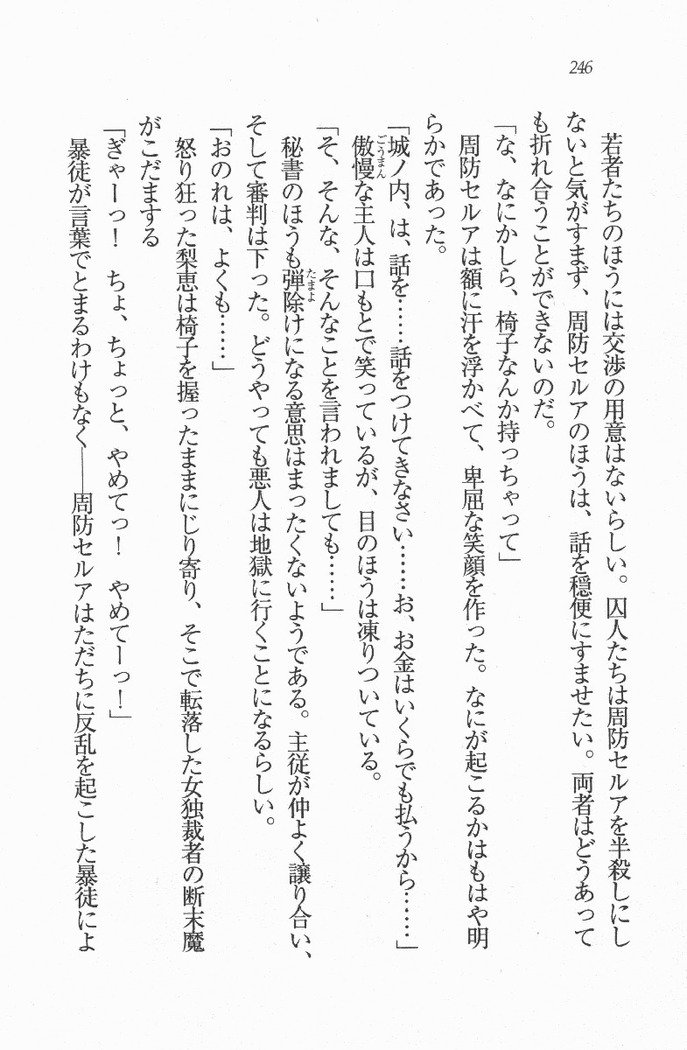 246
若者たちのほうには交渉の用意はないらしい。囚人たちは周防セルアを半殺しにし
ないと気がすまず、周防セルアのほうは、話を穏便にすませたい。両者はどうあって
も折れ合うことができないのだ。
「な、なにかしら、椅子なんか持っちゃって」
周防セルアは額に汗を浮かべて、卑屈な笑顔を作った。なにが起こるかはもはや明
らかであった。
「城ノ内、は、話を……話をつけてきなさい……お、お金はいくらでも払うから……」
傲慢な主人は口もとで笑っているが、目のほうは凍りついている。
「そ、そんな、そんなことを言われましても……」
秘書のほうも弾除けになる意思はまったくないようである。主従が仲よく譲り合い、
そして審判は下った。どうやっても悪人は地獄に行くことになるらしい。
「おのれは、よくも……」
怒り狂った梨恵は椅子を握ったままにじり寄り、そこで転落した女独裁者の断末魔
がこだまする
「ぎゃーっ！　ちょ、ちょっと、やめてっ！　やめてーっ！」
暴徒が言葉でとまるわけもなく――周防セルアはただちに反乱を起こした暴徒によ